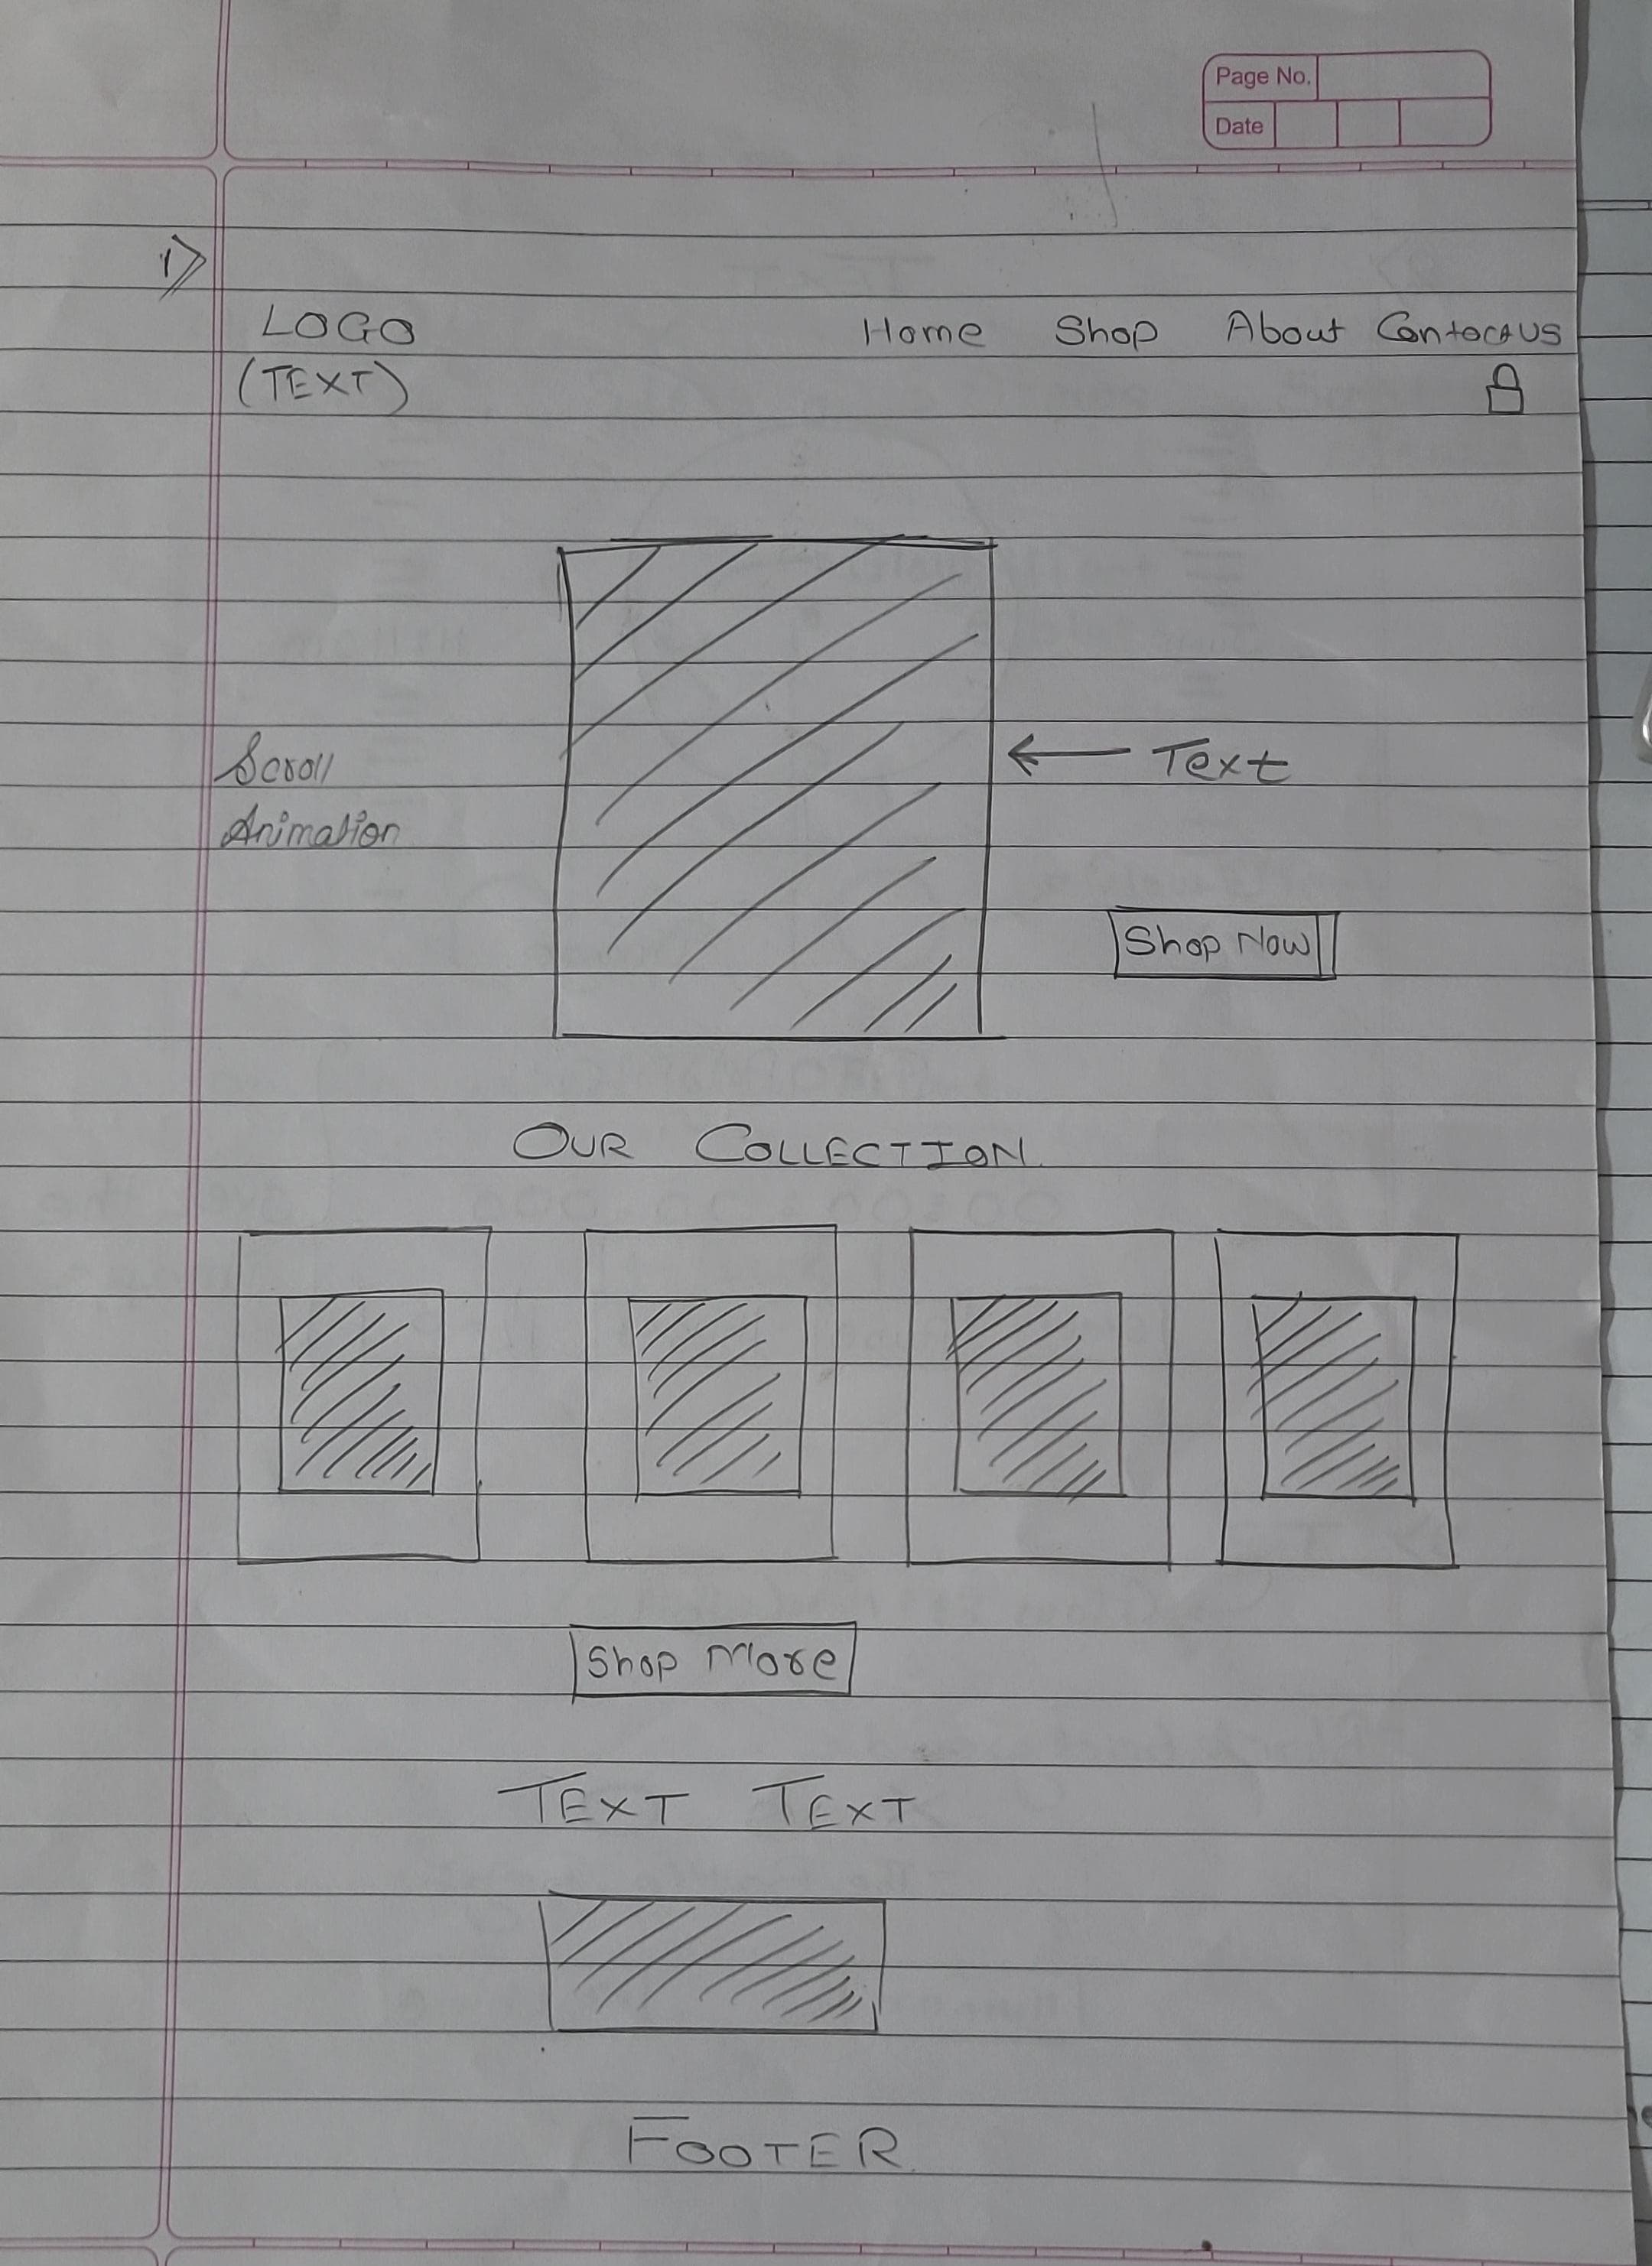 Page No.
Date
1>
LOGO Home Shop About Contact US
(TEXT)
Scroll
Animation
← Text
Shop Now
OUR COLLECTION
Shop More
TEXT TEXT
FOOTER